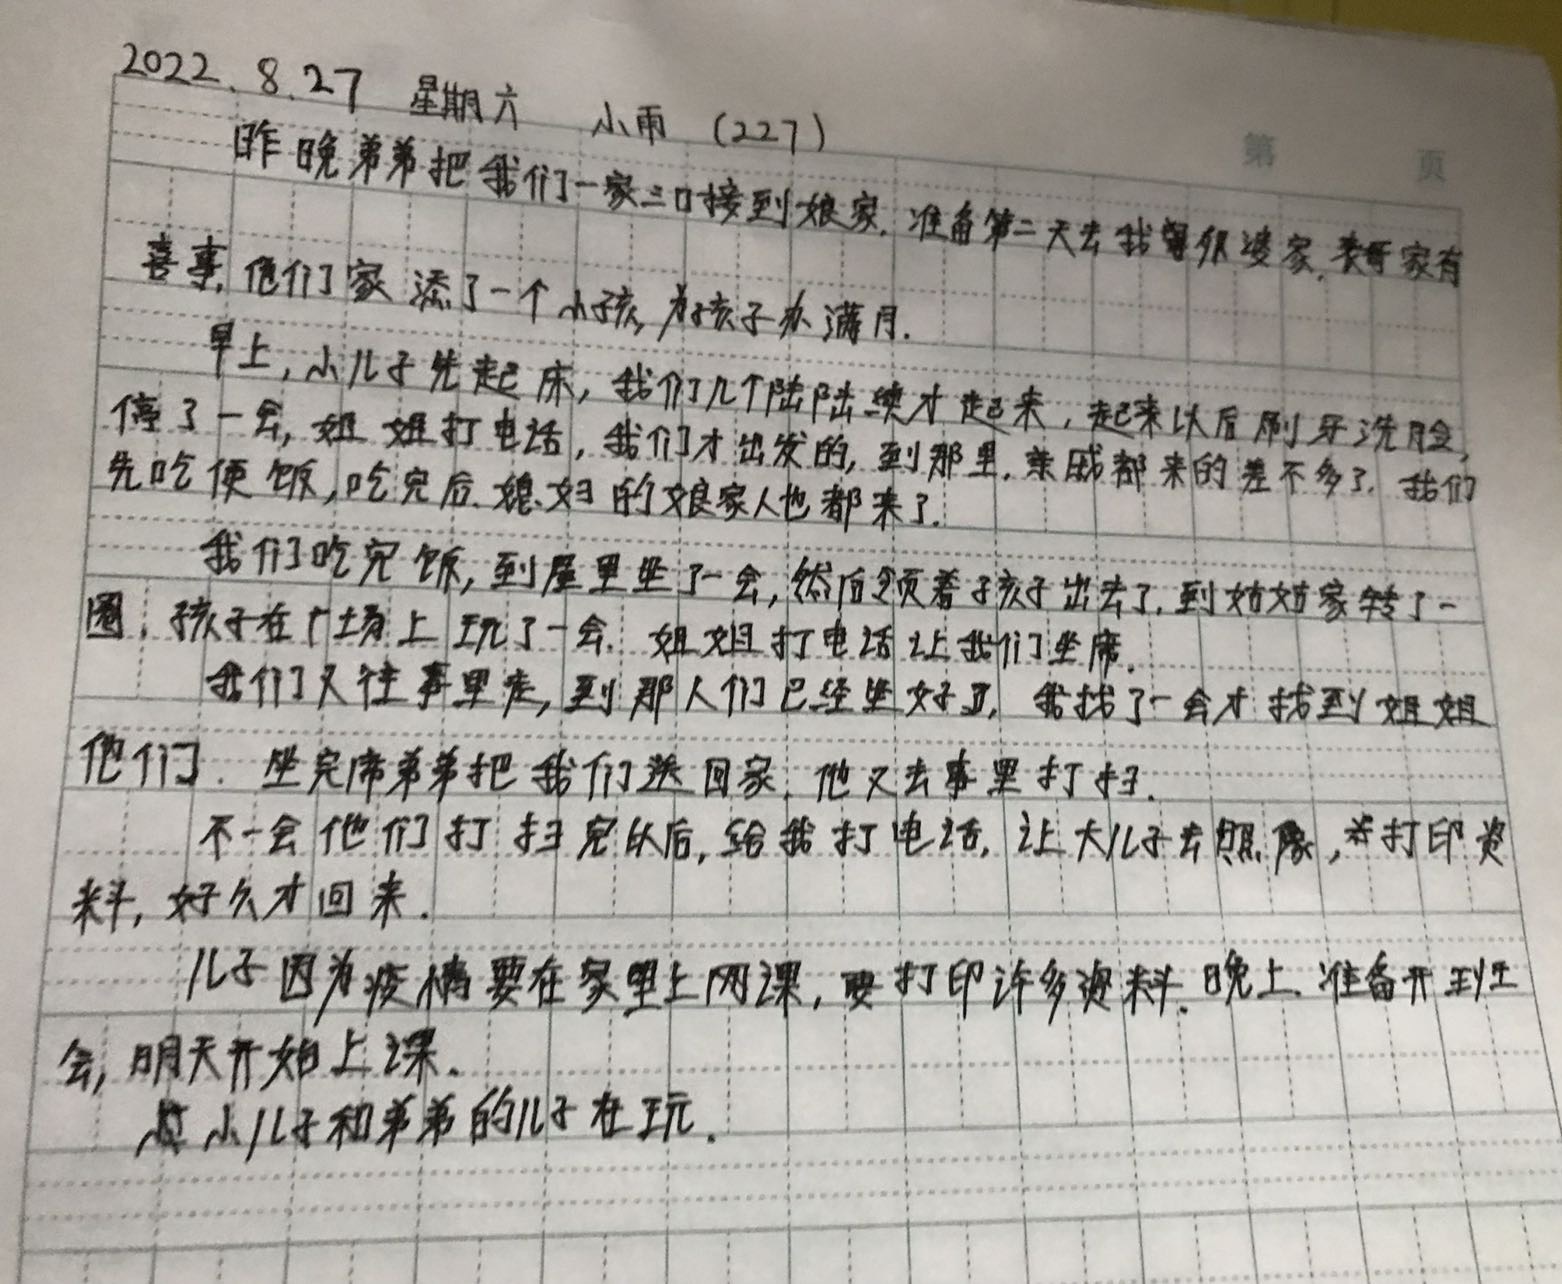 2022.8.27 星期六 小雨 (227)
第 页
昨晚弟弟把我们一家三口接到娘家.准备第二天去我婆家,表哥家有
喜事,他们家添了一个小孩,为孩子办满月.
早上,小儿子先起床,我们几个陆陆续才起来,起来以后刷牙洗脸,
停了一会,姐姐打电话,我们才出发的,到那里.亲戚都来的差不多了.我们
先吃便饭,吃完后.媳妇的娘家人也都来了.
我们吃完饭,到屋里坐了一会,然后领着孩子出去了.到姑姑家转了一
圈.孩子在广场上玩了一会.姐姐打电话让我们坐席.
我们又往事里走,到那人们已经坐好了,我找了一会才找到姐姐
他们.坐完席弟弟把我们送回家.他又去事里打扫.
不一会他们打扫完以后,给我打电话,让大儿子去照像,并打印资
料,好久才回来.
儿子因为疫情要在家里上网课,要打印许多资料.晚上.准备开班
会,明天开始上课.
小儿子和弟弟的儿子在玩.